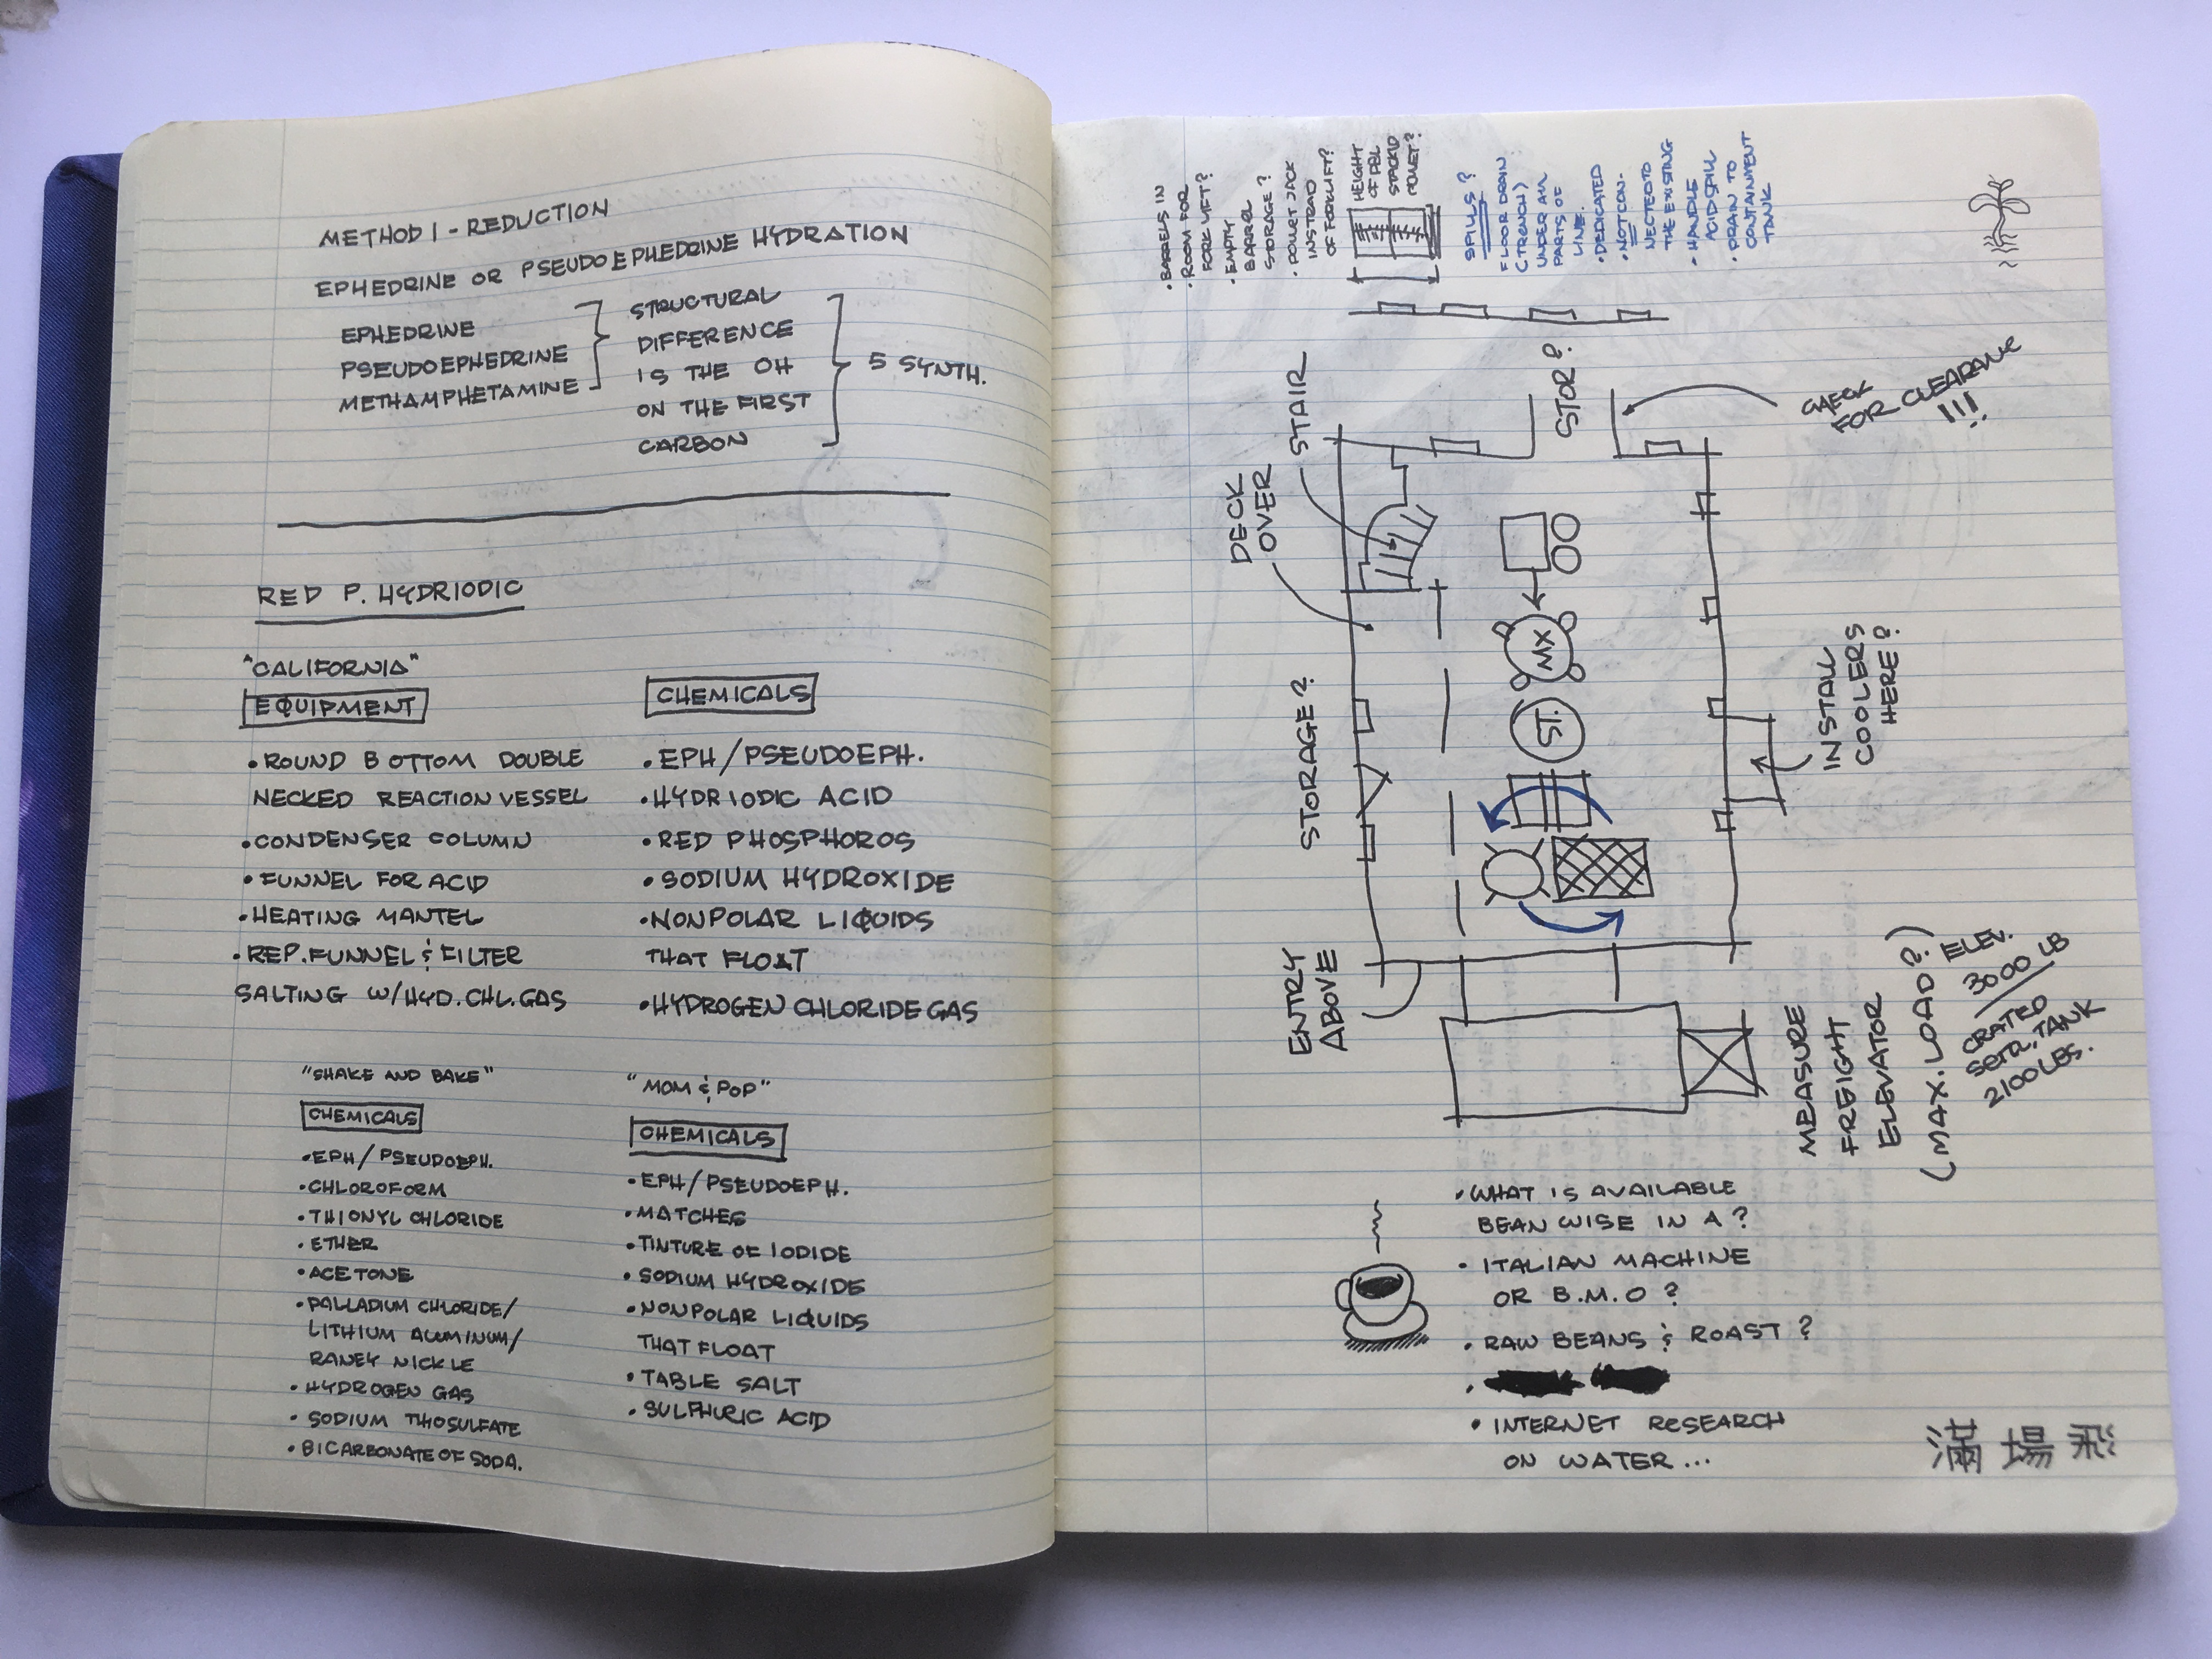 METHOD 1 - REDUCTION
EPHEDRINE OR PSEUDOEPHEDRINE HYDRATION
EPHEDRINE
PSEUDOEPHEDRINE
METHAMPHETAMINE
STRUCTURAL
DIFFERENCE
IS THE OH
ON THE FIRST
CARBON
5 SYNTH.
RED P. HYDRIODIC
"CALIFORNIA"
EQUIPMENT
• ROUND BOTTOM DOUBLE
NECKED REACTION VESSEL
• CONDENSER COLUMN
• FUNNEL FOR ACID
• HEATING MANTEL
• REP. FUNNEL & FILTER
SALTING W/HYD. CHL. GAS
CHEMICALS
• EPH/PSEUDOEPH.
• HYDRIODIC ACID
• RED PHOSPHOROS
• SODIUM HYDROXIDE
• NONPOLAR LIQUIDS
THAT FLOAT
• HYDROGEN CHLORIDE GAS
"SHAKE AND BAKE"
CHEMICALS
• EPH/PSEUDOEPH.
• CHLOROFORM
• THIONYL CHLORIDE
• ETHER
• ACETONE
• PALLADIUM CHLORIDE/
LITHIUM ALUMINUM/
RANEY NICKLE
• HYDROGEN GAS
• SODIUM THIOSULFATE
• BICARBONATE OF SODA.
"MOM & POP"
CHEMICALS
• EPH/PSEUDOEPH.
• MATCHES
• TINTURE OF IODIDE
• SODIUM HYDROXIDE
• NONPOLAR LIQUIDS
THAT FLOAT
• TABLE SALT
• SULPHURIC ACID
• BARRELS IN
• ROOM FOR
FORK LIFT?
• EMPTY
BARREL
STORAGE?
JACK
INSTEAD
OF FORKLIFT?
HEIGHT
OF DBL
STACKED
SPILLS?
FLOOR DRAIN
(TRENCH)
UNDER ALL
PARTS OF
LINE.
• DEDICATED
• NOT CON-
NECTED TO
THE EXISTING
• HANDLE
ACID SPILL
• DRAIN TO
CONTAINMENT
TANK
STAIR
DECK
OVER
STOR?
CHECK
FOR CLEARANC
!!!
MX
ST.
STORAGE?
INSTALL
COOLERS
HERE?
ENTRY
ABOVE
MEASURE
FREIGHT
ELEVATOR
(MAX. LOAD?)
ELEV.
3000 LB
CRATED
TANK
2100 LBS.
• WHAT IS AVAILABLE
BEAN WISE IN A?
• ITALIAN MACHINE
OR B.M.O?
• RAW BEANS & ROAST?
• INTERNET RESEARCH
ON WATER...
滿場飛